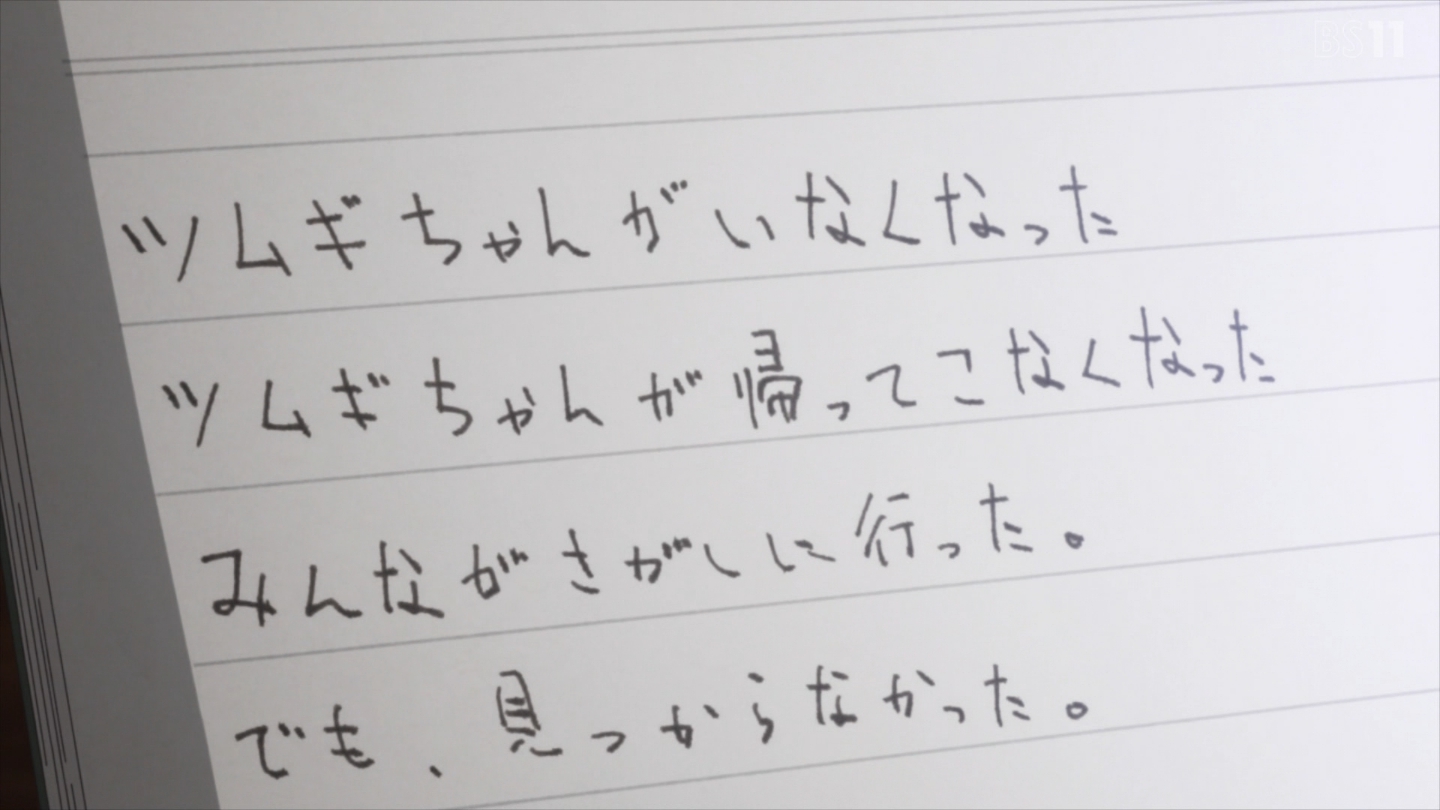 BS11
ツムギちゃんがいなくなった
ツムギちゃんが帰ってこなくなった
みんながさがしに行った。
でも、見つからなかった。